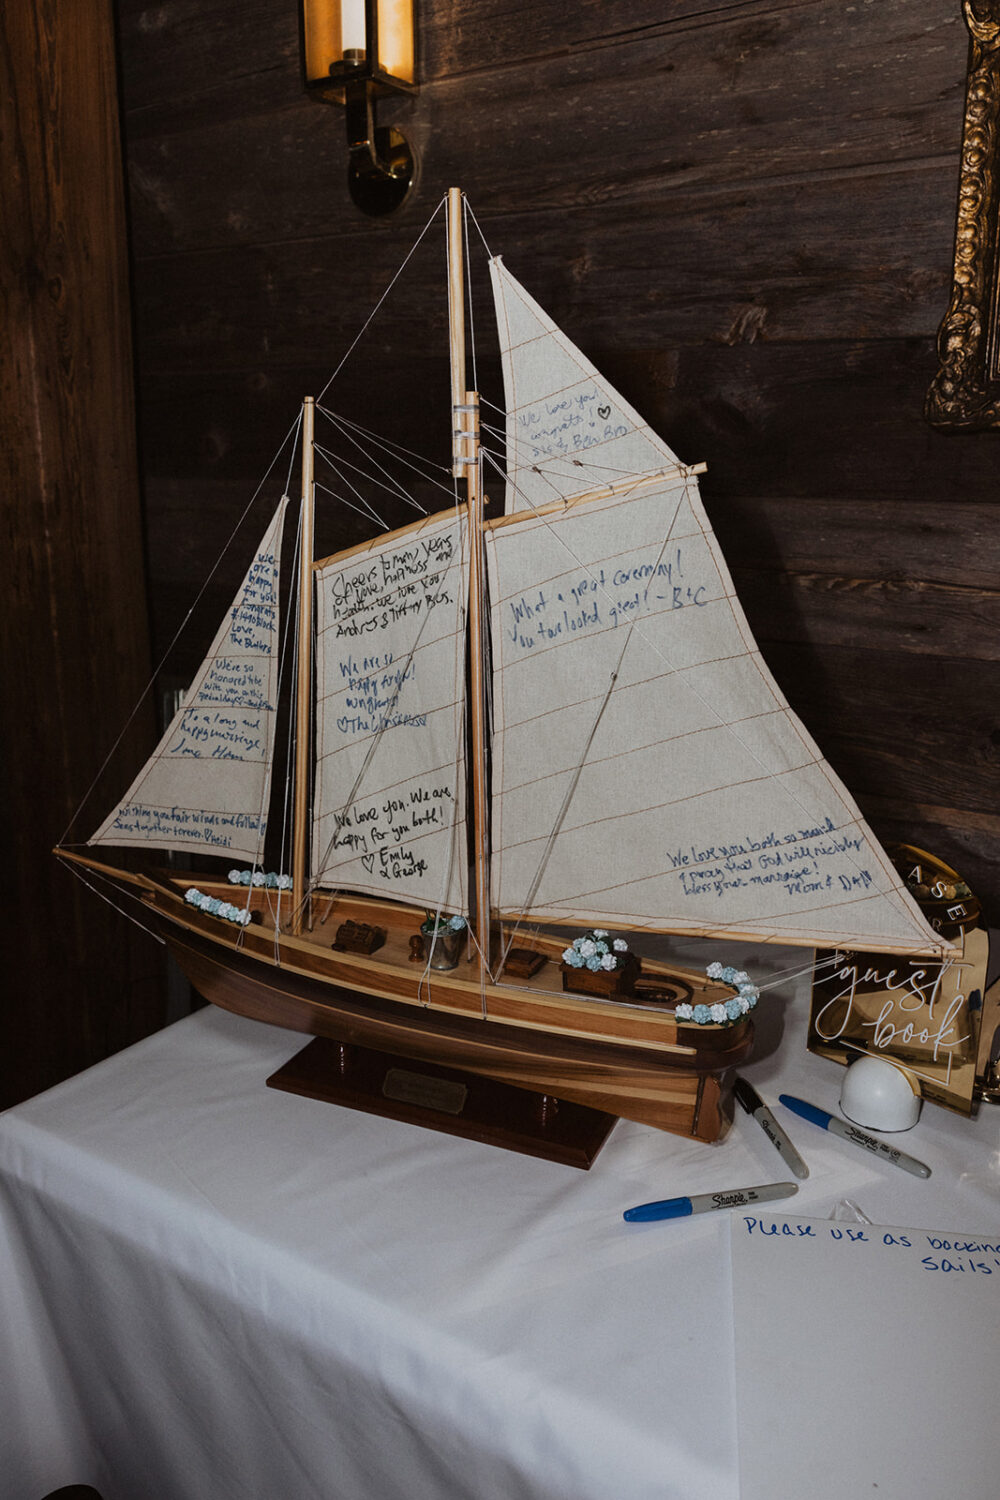 We love you!
congrats!
Sis & Ben Bro
Cheers to many years
of love, happiness and
health. We love you,
Andrew & Tiffany
What a great ceremony!
You two looked great! - B+C
We are so
happy for you
both! Congrats
Love,
The
We're so
honored to be
with you on this
special day
To a long and
happy marriage!
Wishing you fair winds and following
Seas together forever. Heidi
We are so
happy for you!
The
We love you. We are
happy for you both!
Emily
& George
We love you both so much
& pray that God will richly
bless your marriage!
Mom & Dad
guest
book
Sharpie
Sharpie
Sharpie
Please use as backing
sails